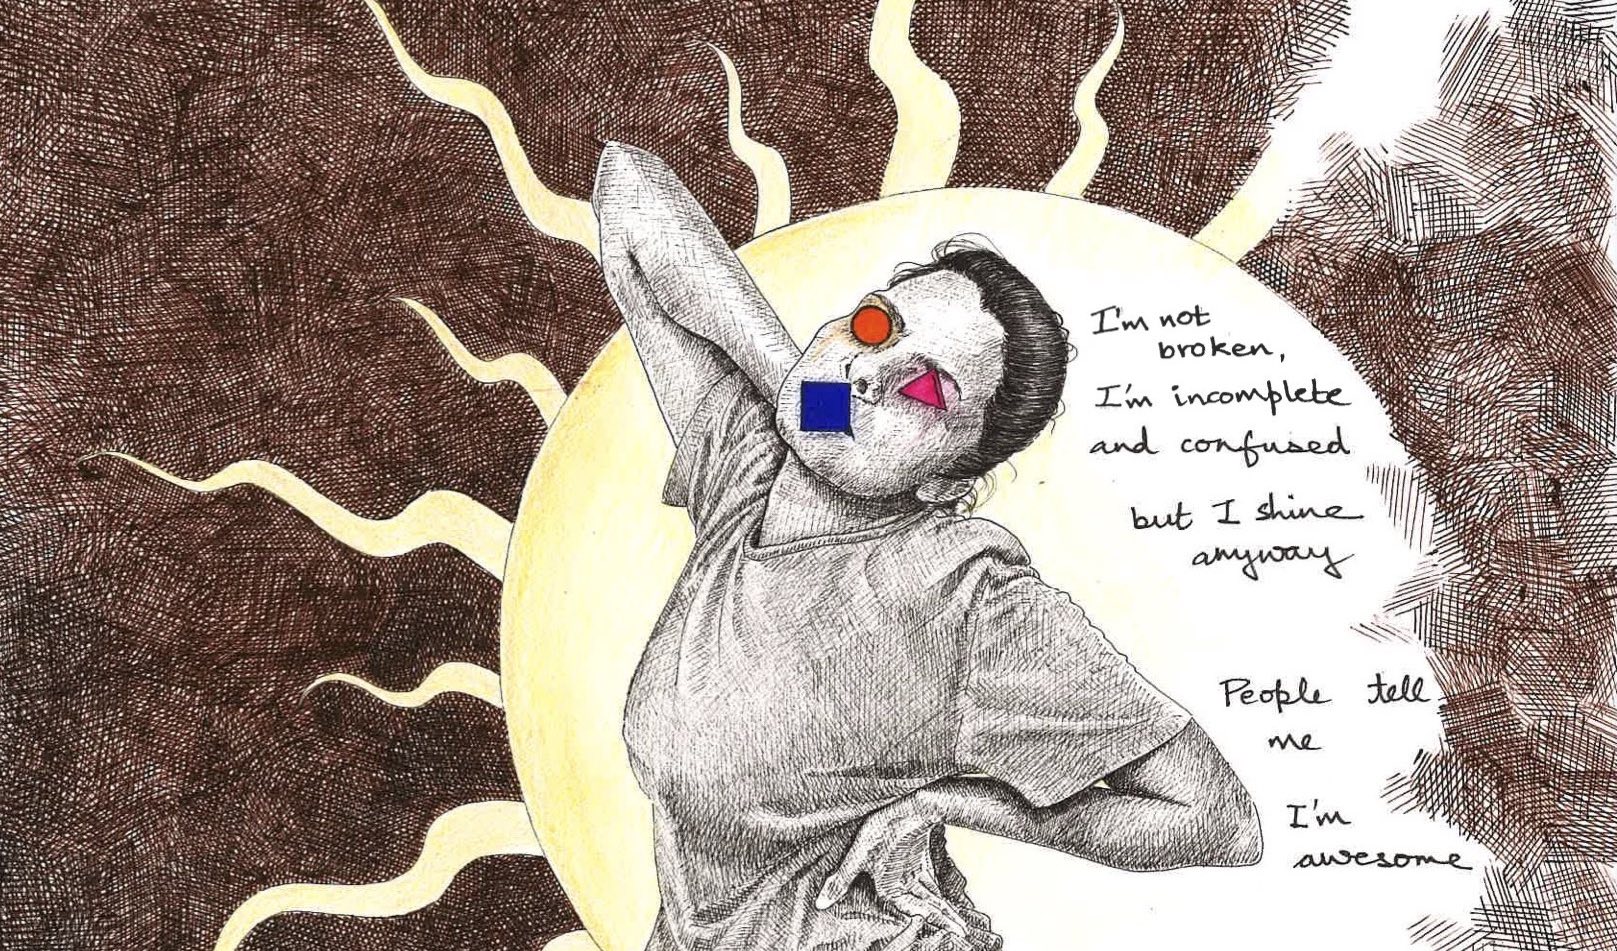 I'm not
broken,
I'm incomplete
and confused
but I shine
anyway
People tell
me
I'm
awesome